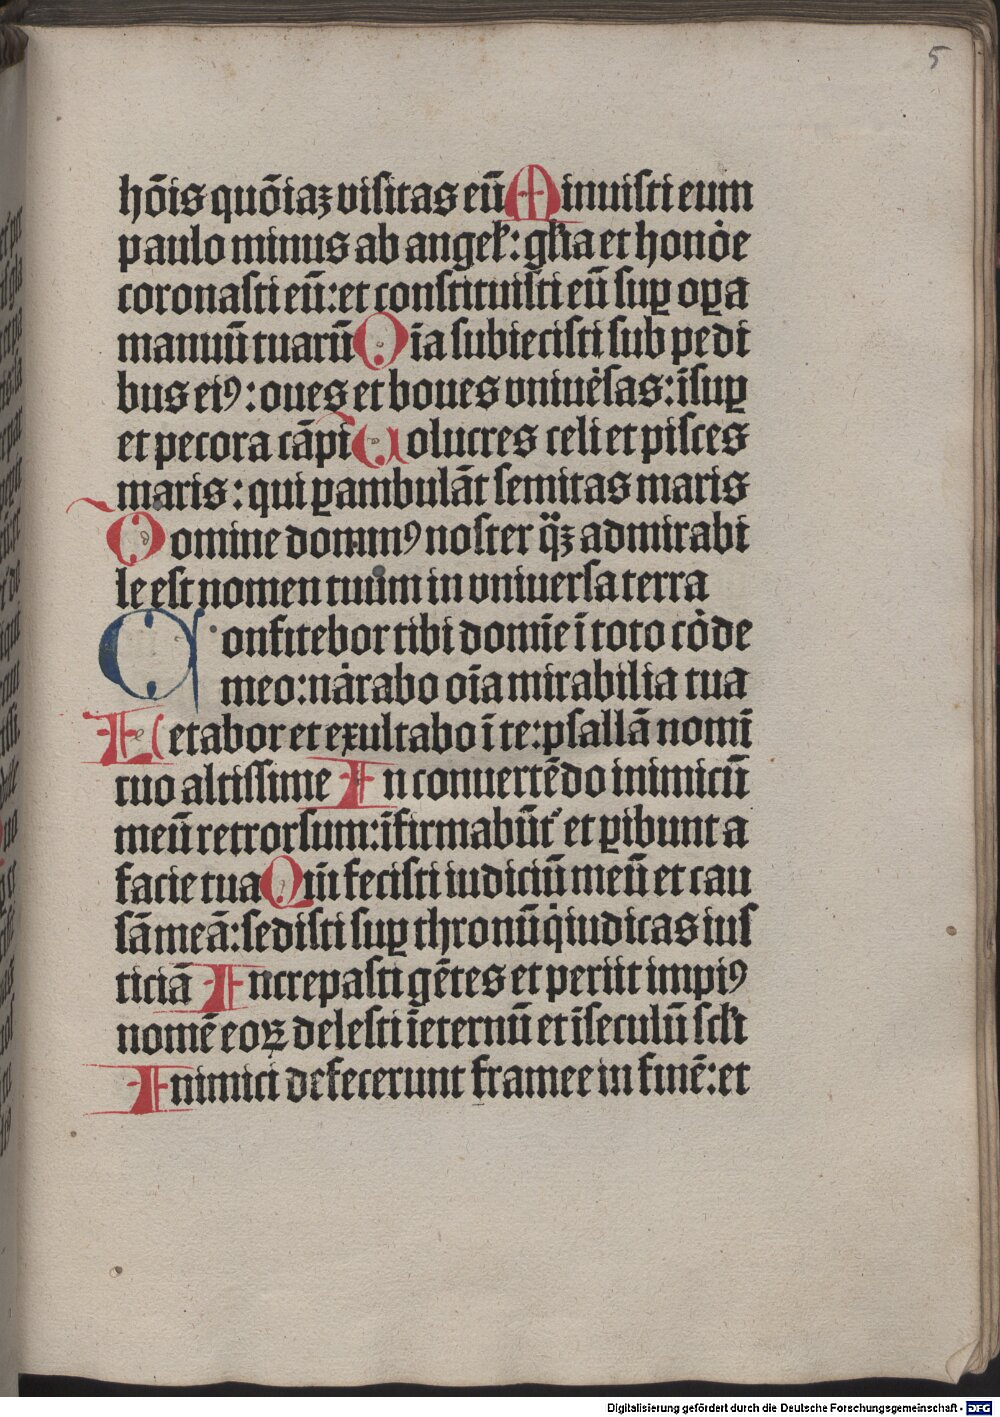 5
hōis quōiaꝫ visitas eū Minuisti eum
paulo minus ab angeł: gl'ia et honōe
coronasti eū: et constituisti eū suꝑ oꝑa
manuū tuarū Oīa subiecisti sub pedi
bus eiꝰ: oues et boues vniuēsas: īsuꝑ
et pecora cāpi Uolucres celi et pisces
maris: qui ꝑambulāt semitas maris
Domine dominꝰ noster q̈ꝫ admirabi
le est nomen tuum in vniuersa terra
Confitebor tibi domīe ī toto cōde
meo: nārabo oīa mirabilia tua
Letabor et exultabo ī te: psallā nomī
tuo altissime In conuertēdo inimicū
meū retrorsum: īfirmabūt᷑ et ꝑibunt a
facie tua Qm̄ fecisti iudiciū meū et cau
sā meā: sedisti suꝑ thronū qͥ iudicas ius
ticiā Increpasti gētes et periit impiꝰ
nomē eoꝝ delesti īeternū et īseculū scl'i
Inimici defecerunt framee in finē: et
Digitalisierung gefördert durch die Deutsche Forschungsgemeinschaft - DFG